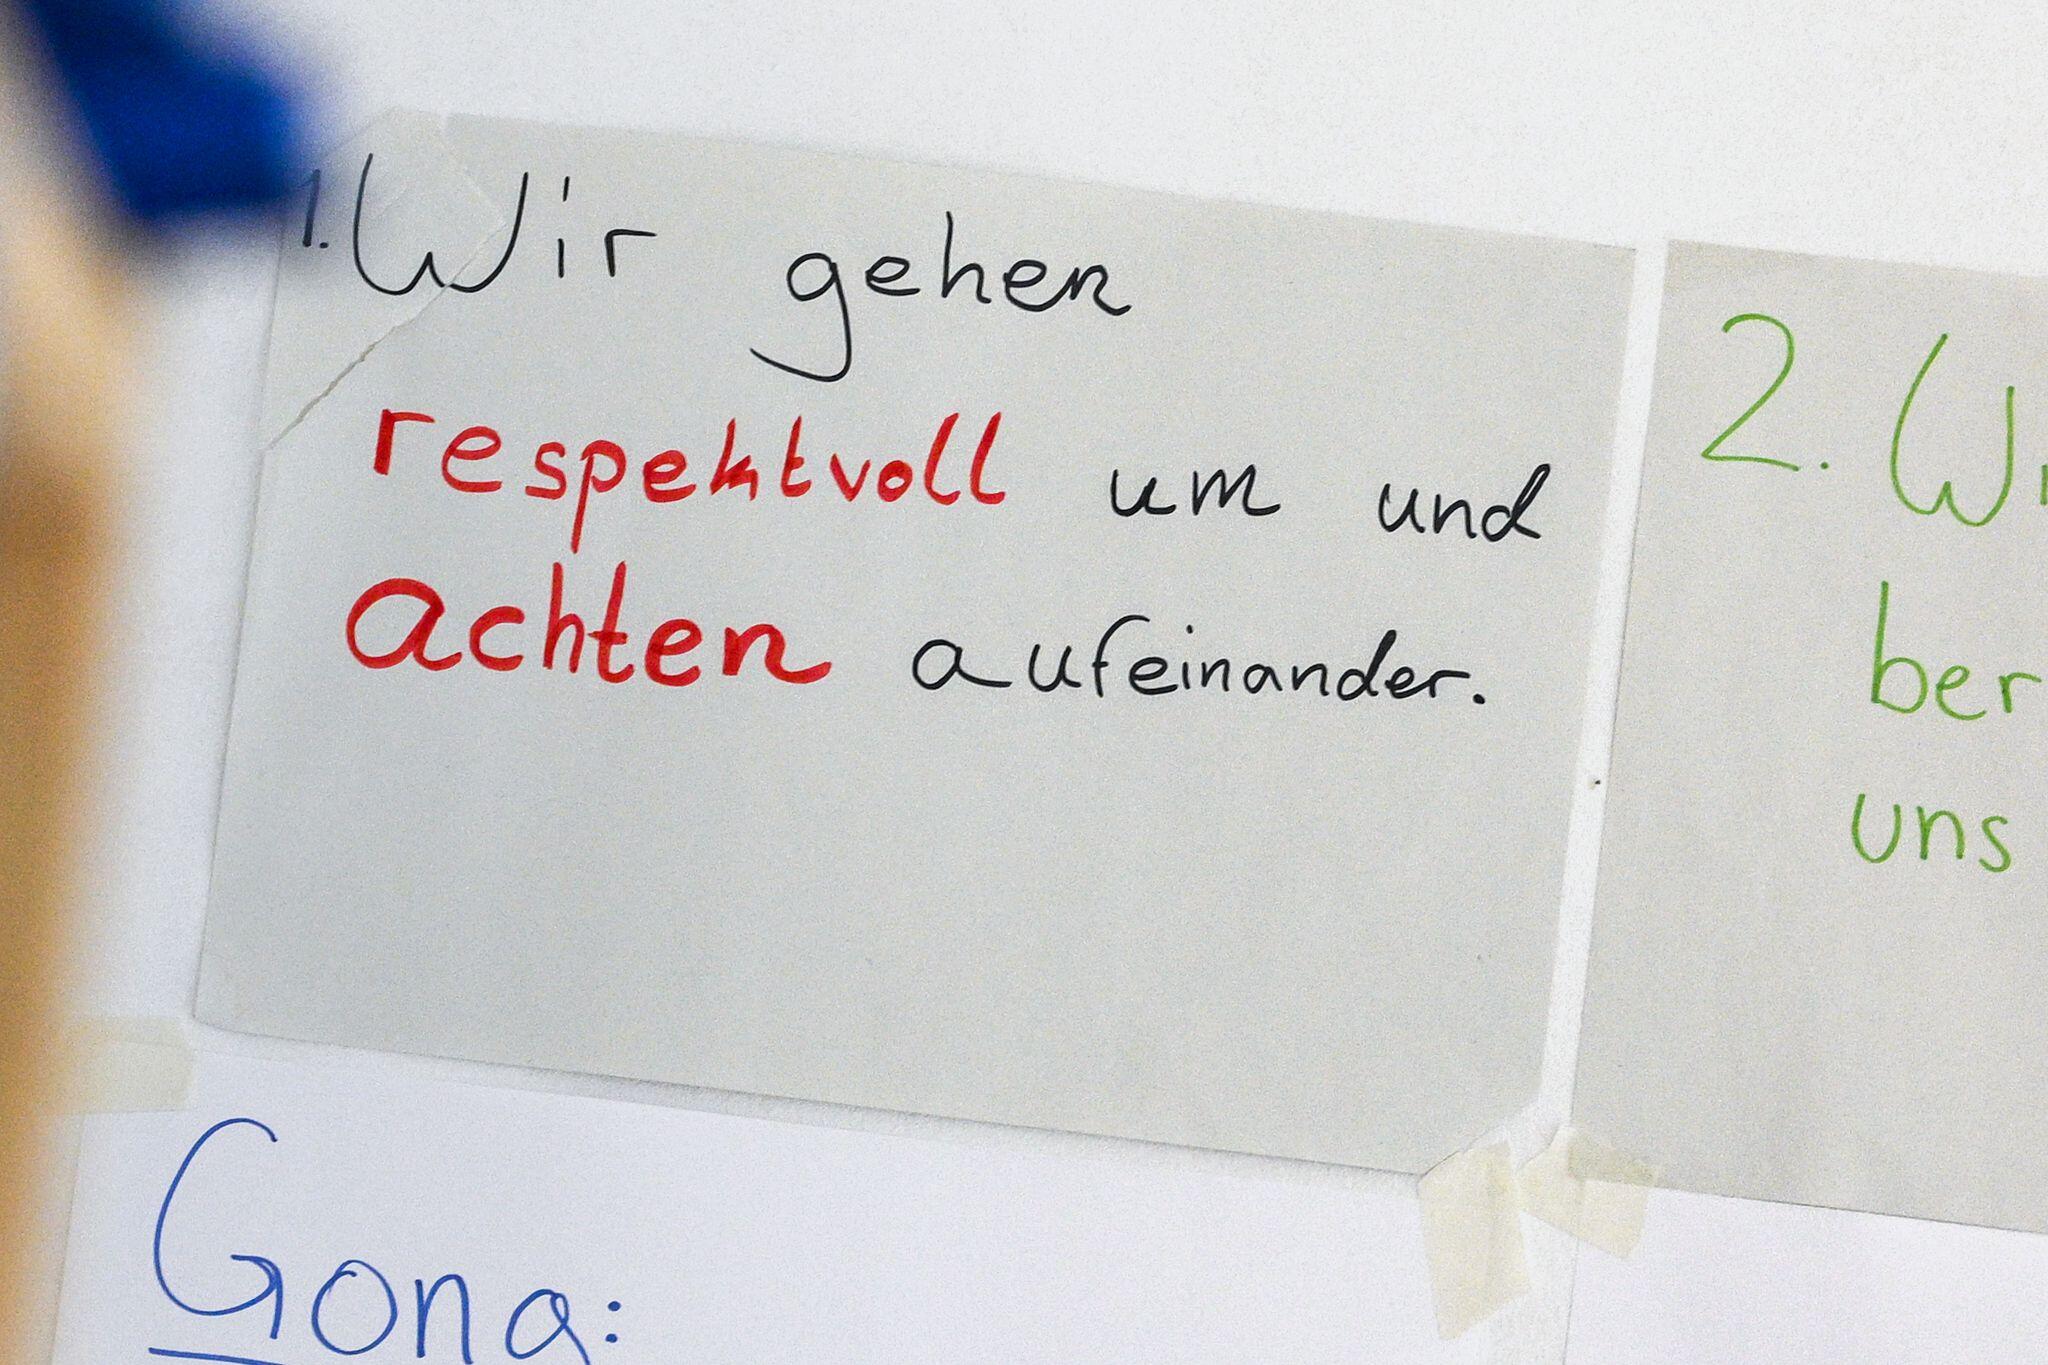 1. Wir gehen
respektvoll um und
achten aufeinander.
2.
uns
Gona: